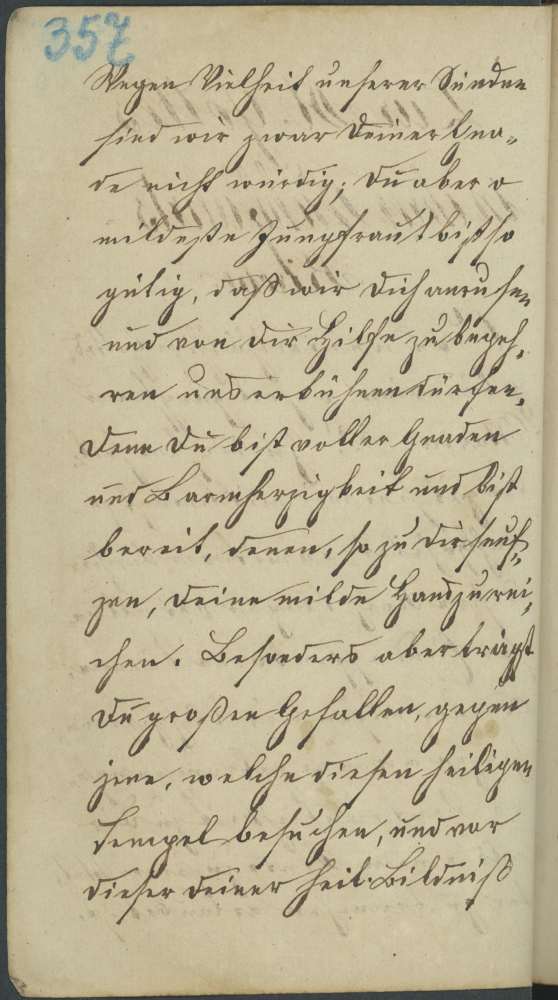 357
Wegen Vielheit unserer Sünden
sind wir zwar deiner Gna-
de nicht würdig; Du aber o
mildeste Jungfrau! bist so
gütig, daß wir Dich anrufen
und von Dir Hilfe zu begeh-
ren uns erkühnen dürfen,
denn Du bist voller Gnaden
und Barmherzigkeit und bist
bereit, denen, so zu dir seuf-
zen, deine milde Hand zu rei-
chen. Besonders aber trägst
Du großen Gefallen, gegen
jene, welche diesen heiligen
Tempel besuchen, und vor
dieser deiner heil. Bildniß